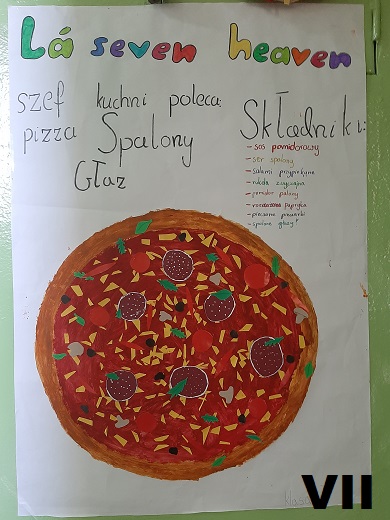 Lá seven heaven
szef kuchni poleca:
pizza Spalony
Głaz
Składniki:
- sos pomidorowy
- ser spalony
- salami przypiekane
- rukola zwyczajna
- pomidor palony
- papryka
- pieczone pieczarki
- spalone głazy!
VII